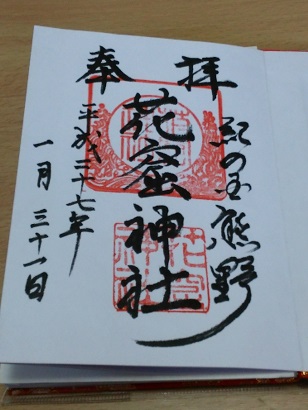 奉拝
紀の国熊野
花窟神社
平成二十七年
一月三十一日